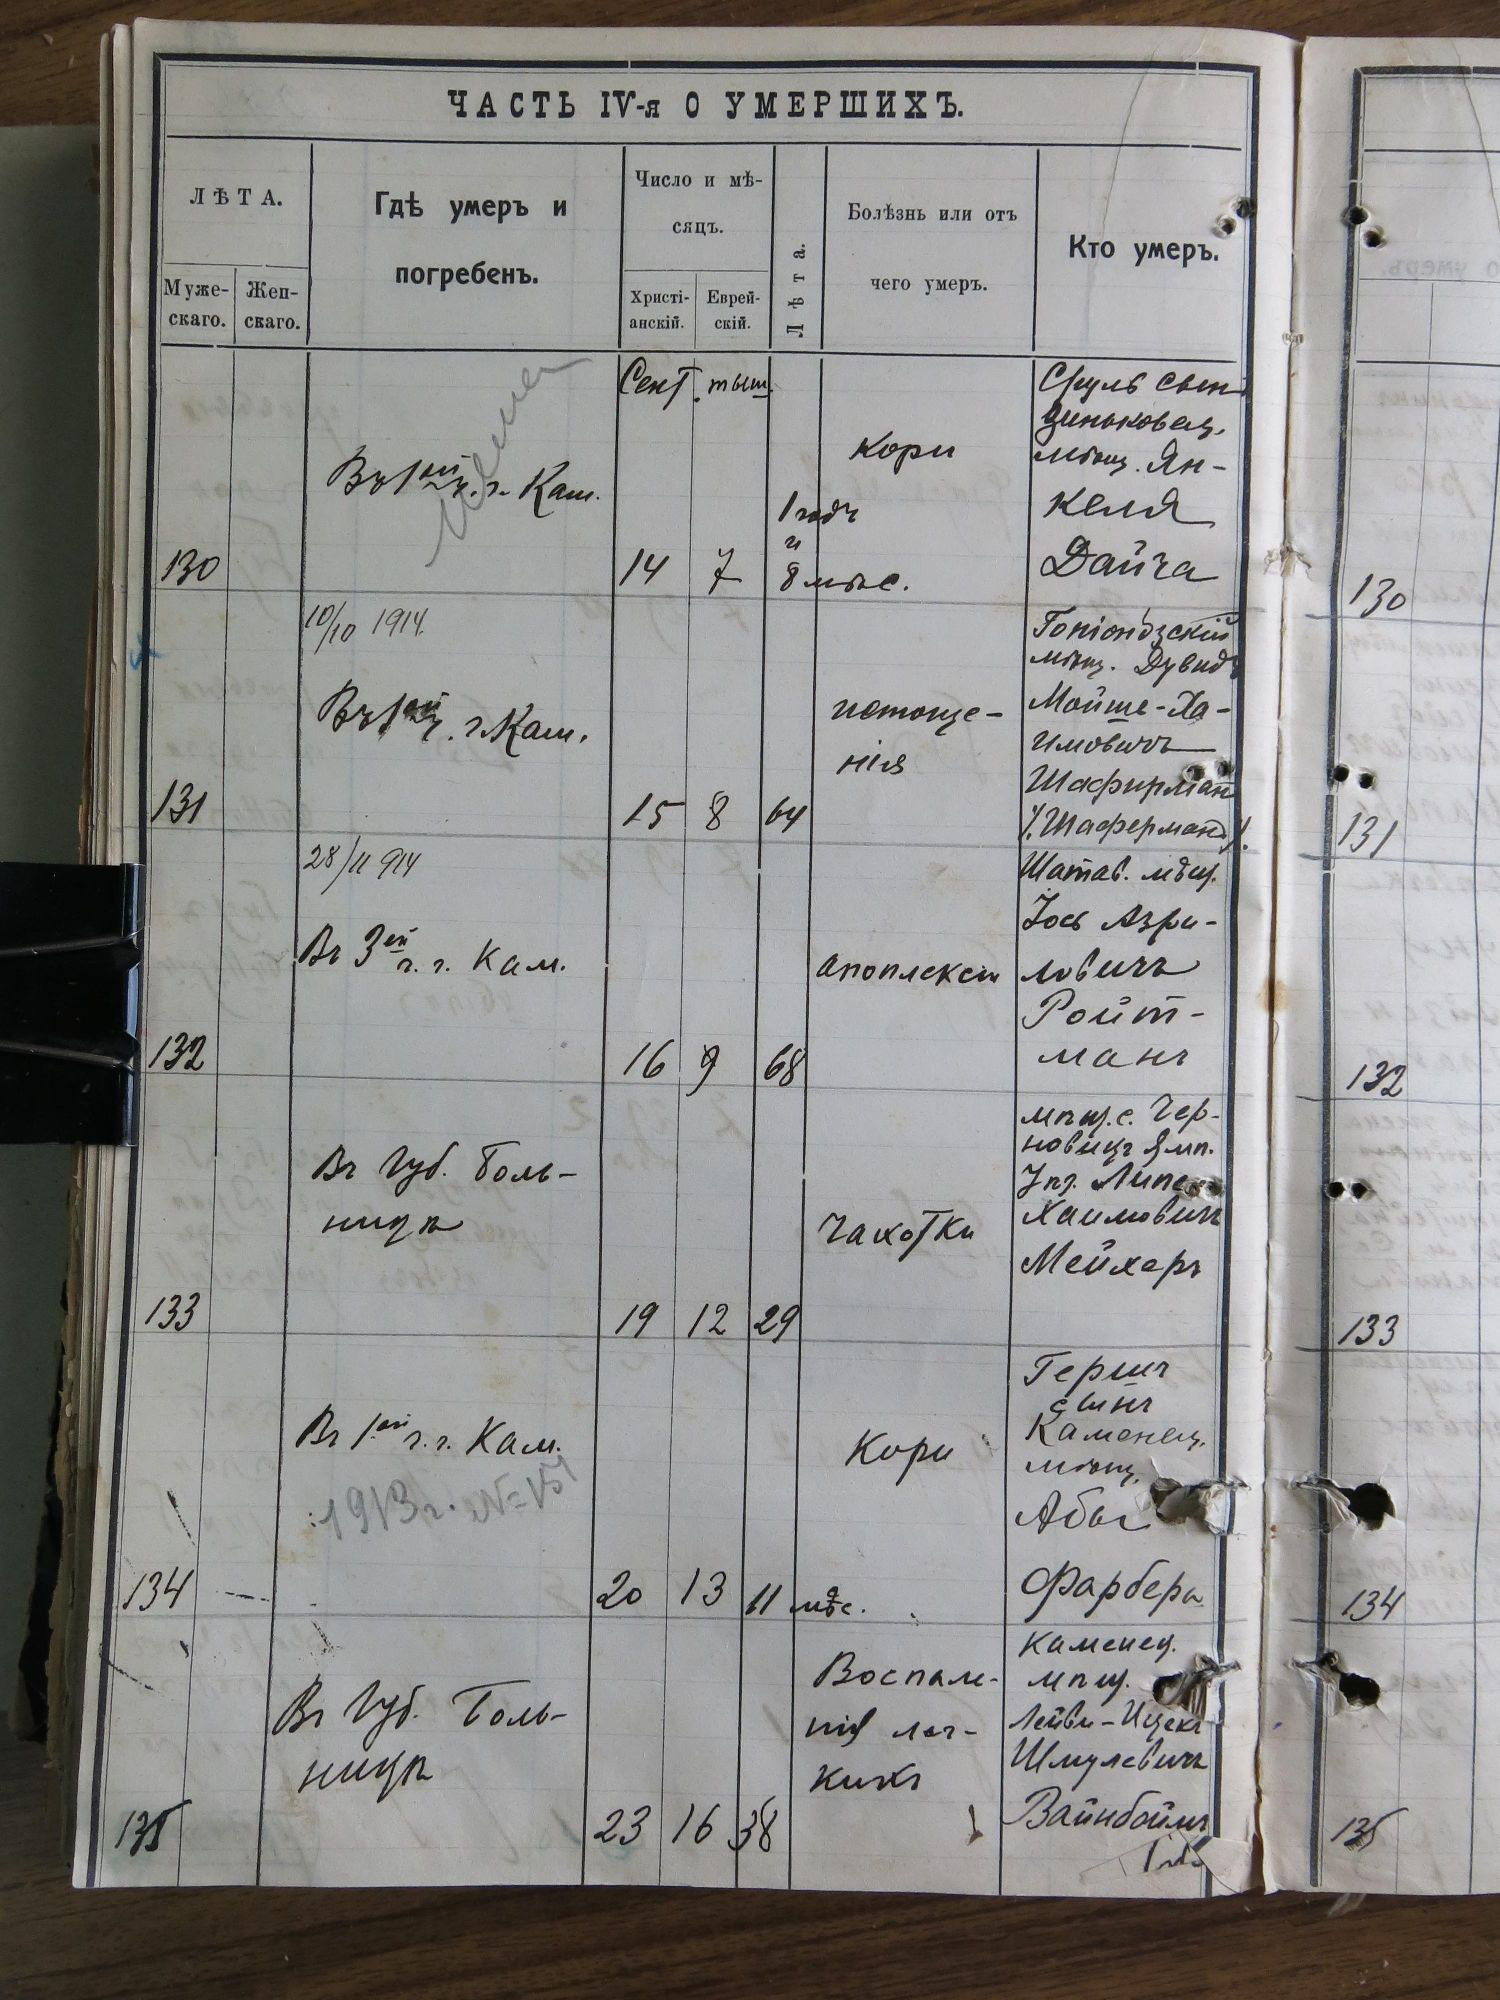 ЧАСТЬ IV-я О УМЕРШИХЪ.
ЛѢТА.
Муже-
скаго.
Жен-
скаго.
Гдѣ умеръ и
погребенъ.
Число и мѣ-
сяцъ.
Христі-
анскій.
Еврей-
скій.
Лѣта.
Болѣзнь или отъ
чего умеръ.
Кто умеръ.
Сент. тыш.
130
Въ 1ой ч. г. Кам.
14
7
1 годъ
и
8 мѣс.
Кори
Сруль сынъ
Зиньковец.
мѣщ. Ян-
келя
Дайча
10/10 1914.
131
Въ 1ой ч. г. Кам.
15
8
64
истоще-
нія
Гоніондзскій
мѣщ. Дувидъ
Мойше-Ха-
имовичъ
Шафирманъ
/.Шаферманъ/.
28/11 914
132
Въ 3ей ч. г. Кам.
16
9
68
апоплексіи
Шатав. мѣщ.
Іось Азри-
ловичъ
Ройт-
манъ
133
Въ Губ. Боль-
ницѣ
19
12
29
Чахотки
мѣщ. с. Чер-
новицъ Ямп.
Уѣз.
Хаимовичъ
Мейхеръ
134
Въ 1ой ч. г. Кам.
1913 г. №
20
13
11 мѣс.
Кори
Гершъ
сынъ
Каменец.
мѣщ.
Абы
Фарбера
135
Въ Губ. Боль-
ницѣ
23
16
38
Воспале-
нія лег-
кихъ
Каменец.
мѣщ.
Лейви-Ицекъ
Шмулевичъ
Вайнбоймъ
130
131
132
133
134
135